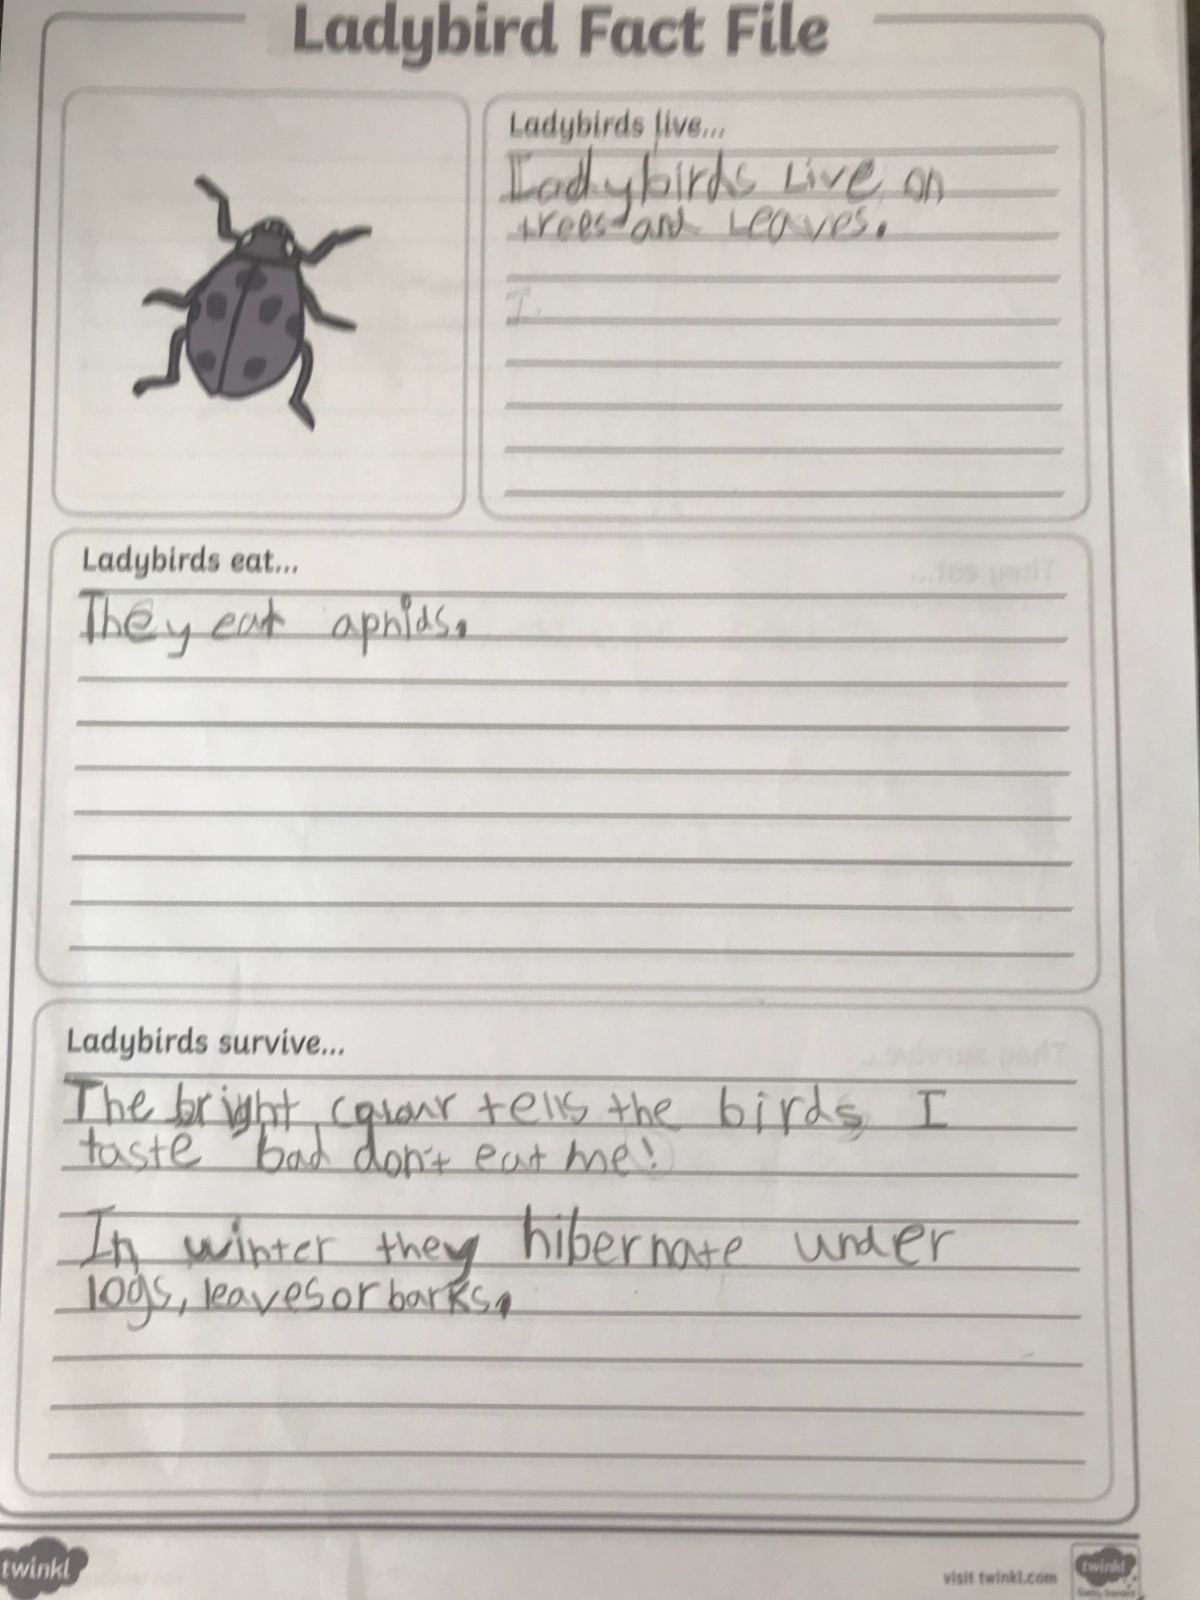 Ladybird Fact File
Ladybirds live...
Ladybirds Live on
trees and Leaves.
I
Ladybirds eat...
They eat aphids.
Ladybirds survive...
The bright colour tells the birds I
taste bad don't eat me!
In winter they hibernate under
logs, leaves or barks.
twinkl
visit twinkl.com
twinkl